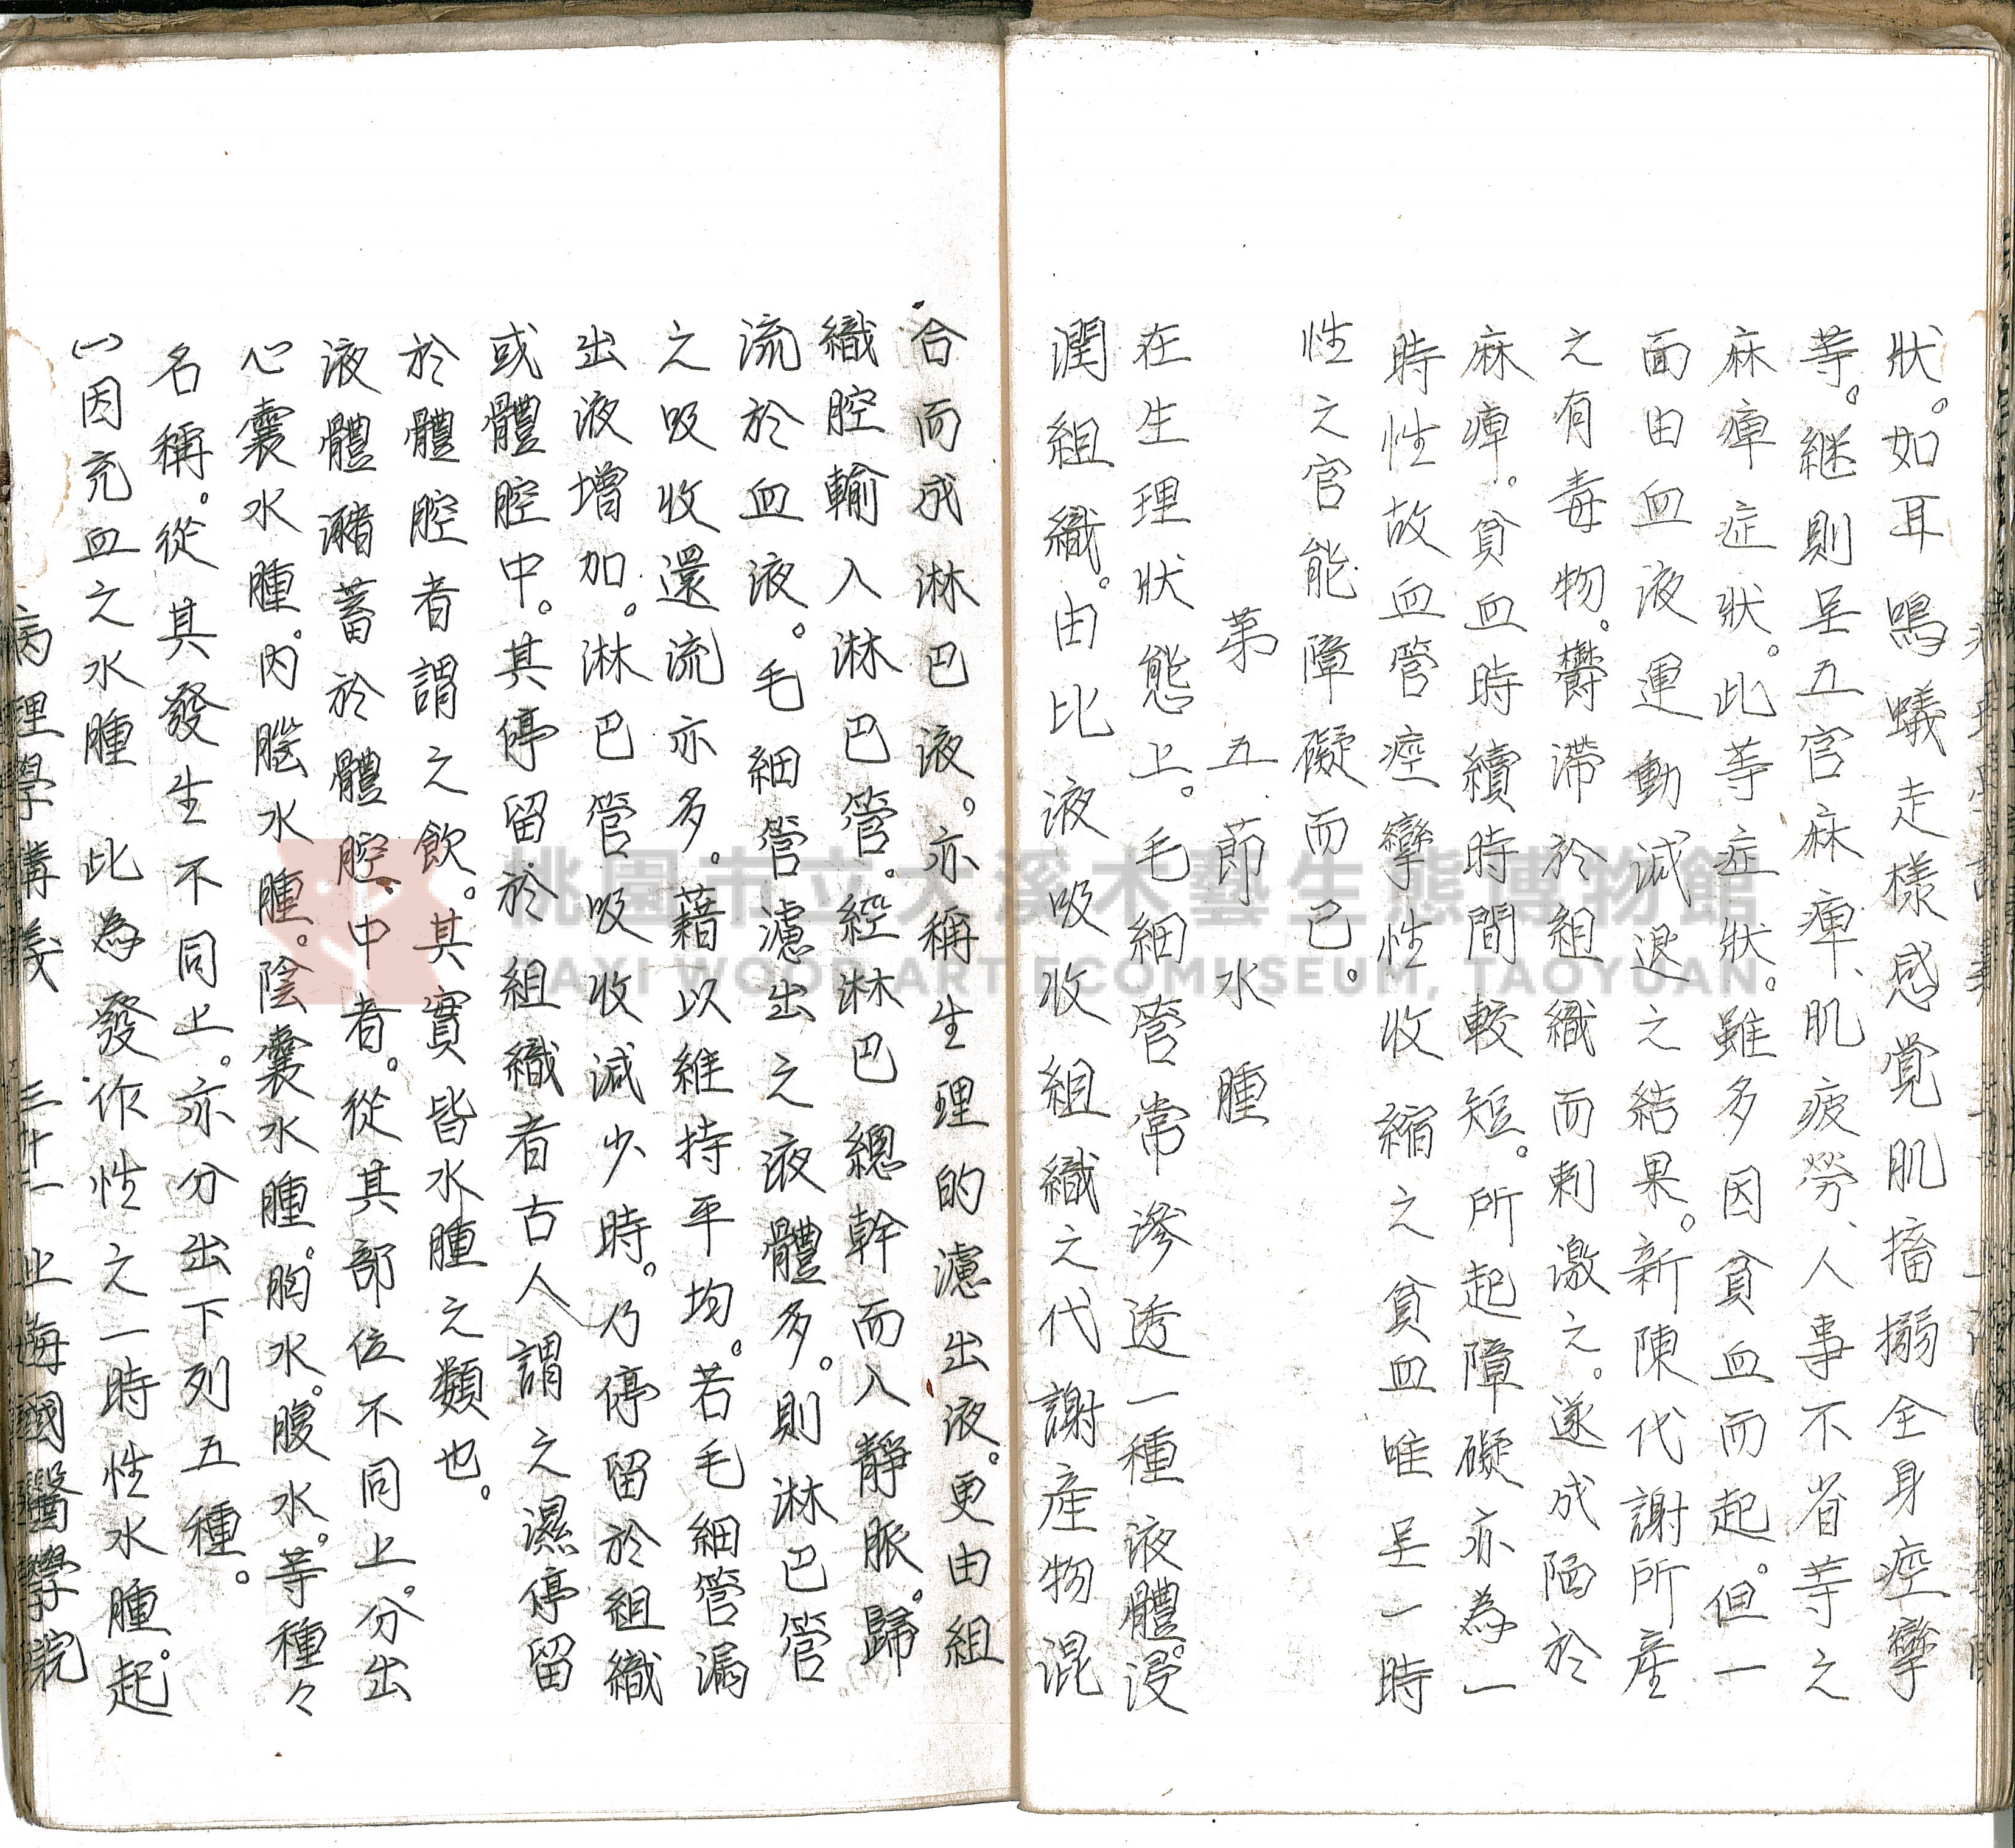 狀。如耳鳴蟻走樣感覚肌搐搦全身痙攣
等。継則呈五官麻痺、肌疲勞、人事不省等之
麻痺症狀。此等症狀。雖多因貧血而起。但一
面由血液運動減退之結果。新陳代謝所產
之有毒物。欝滞於組織而刺激之。遂成陷於
麻痺。貧血時續時間較短。所起障礙亦為一
時性故血管痙攣性收縮之貧血唯呈一時
性之官能障礙而已。
第五節水腫
在生理狀態上。毛細管常滲透一種液體。浸
潤組織。由比液吸收組織之代謝產物混
合而成淋巴液。亦稱生理的濾出液。更由組
織腔輸入淋巴管。經淋巴總幹而入靜脈。歸
流於血液。毛細管濾出之液體多。則淋巴管
之吸收還流亦多。藉以維持平均。若毛細管漏
出液增加。淋巴管吸收減少時。乃停留於組織
或體腔中。其停留於組織者古人謂之濕停留
於體腔者謂之飲。其實皆水腫之類也。
液體瀦蓄於體腔中者。從其部位不同上。分出
心囊水腫。內腦水腫。陰囊水腫。胸水。腹水。等種々
名稱。從其發生不同上。亦分出下列五種。
(一)因充血之水腫 此為發作性之一時性水腫。起
病理學講義 三十一 上海國醫學院
桃園市立大溪木藝生態博物館
DAXI WOOD ART ECOMUSEUM, TAOYUAN